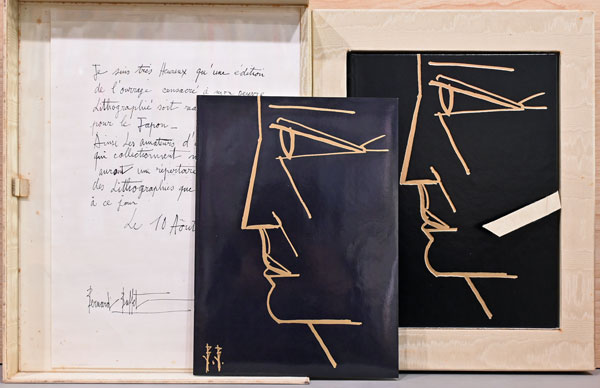 Je suis très Heureux qu'une édition
de l'ouvrage consacré à mon oeuvre
Lithographié soit
pour le Japon_
Ainsi Les amateurs
qui collectionnent
auront un repertoire
des Lithographies que
à ce jour
Le 10 Août
Bernard Buffet